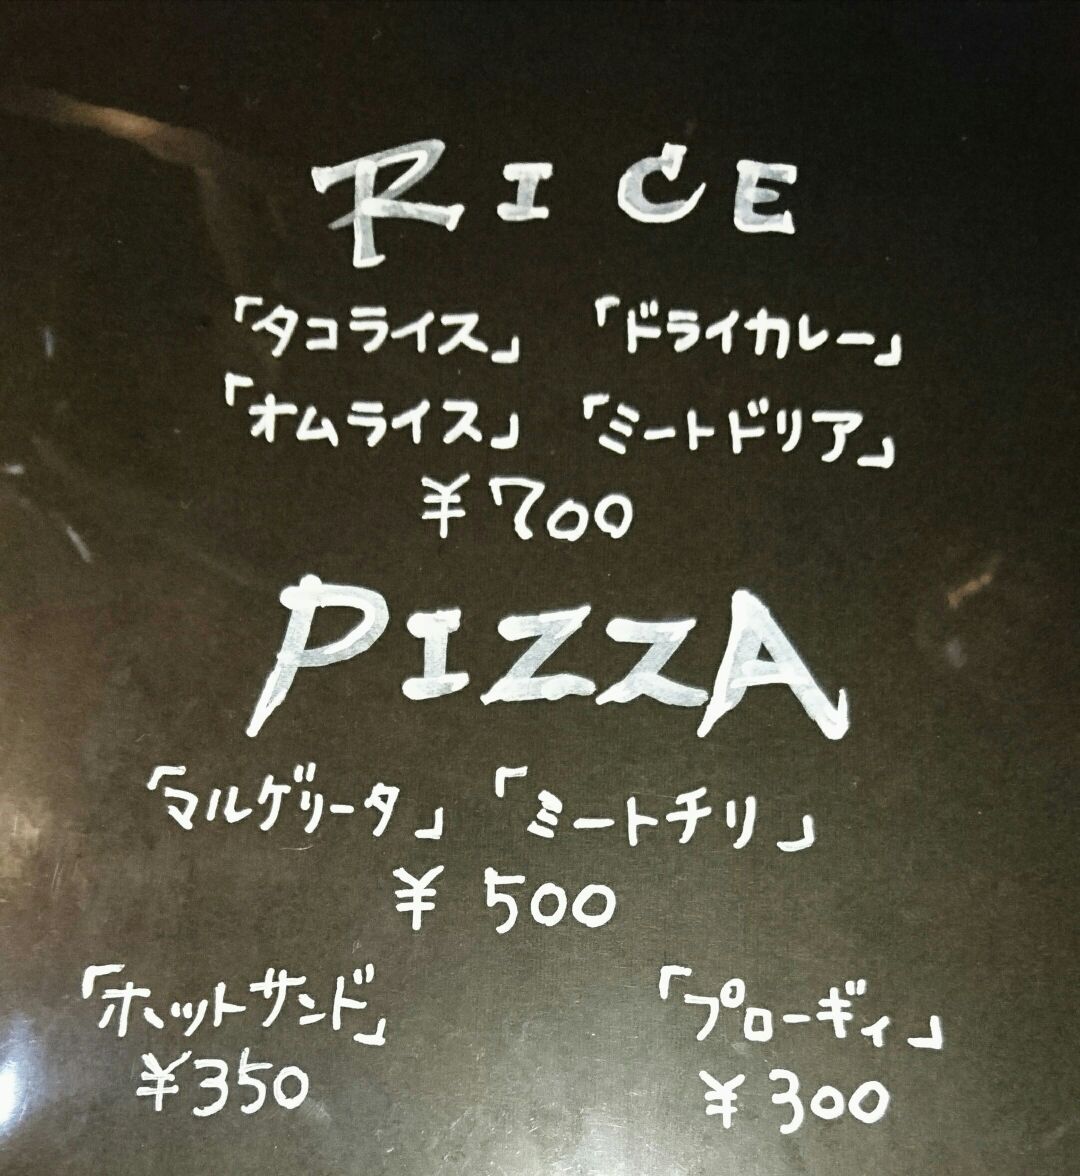 RICE
「タコライス」 「ドライカレー」
「オムライス」 「ミートドリア」
¥700
PIZZA
「マルゲリータ」 「ミートチリ」
¥500
「ホットサンド」 「プローギィ」
¥350 ¥300